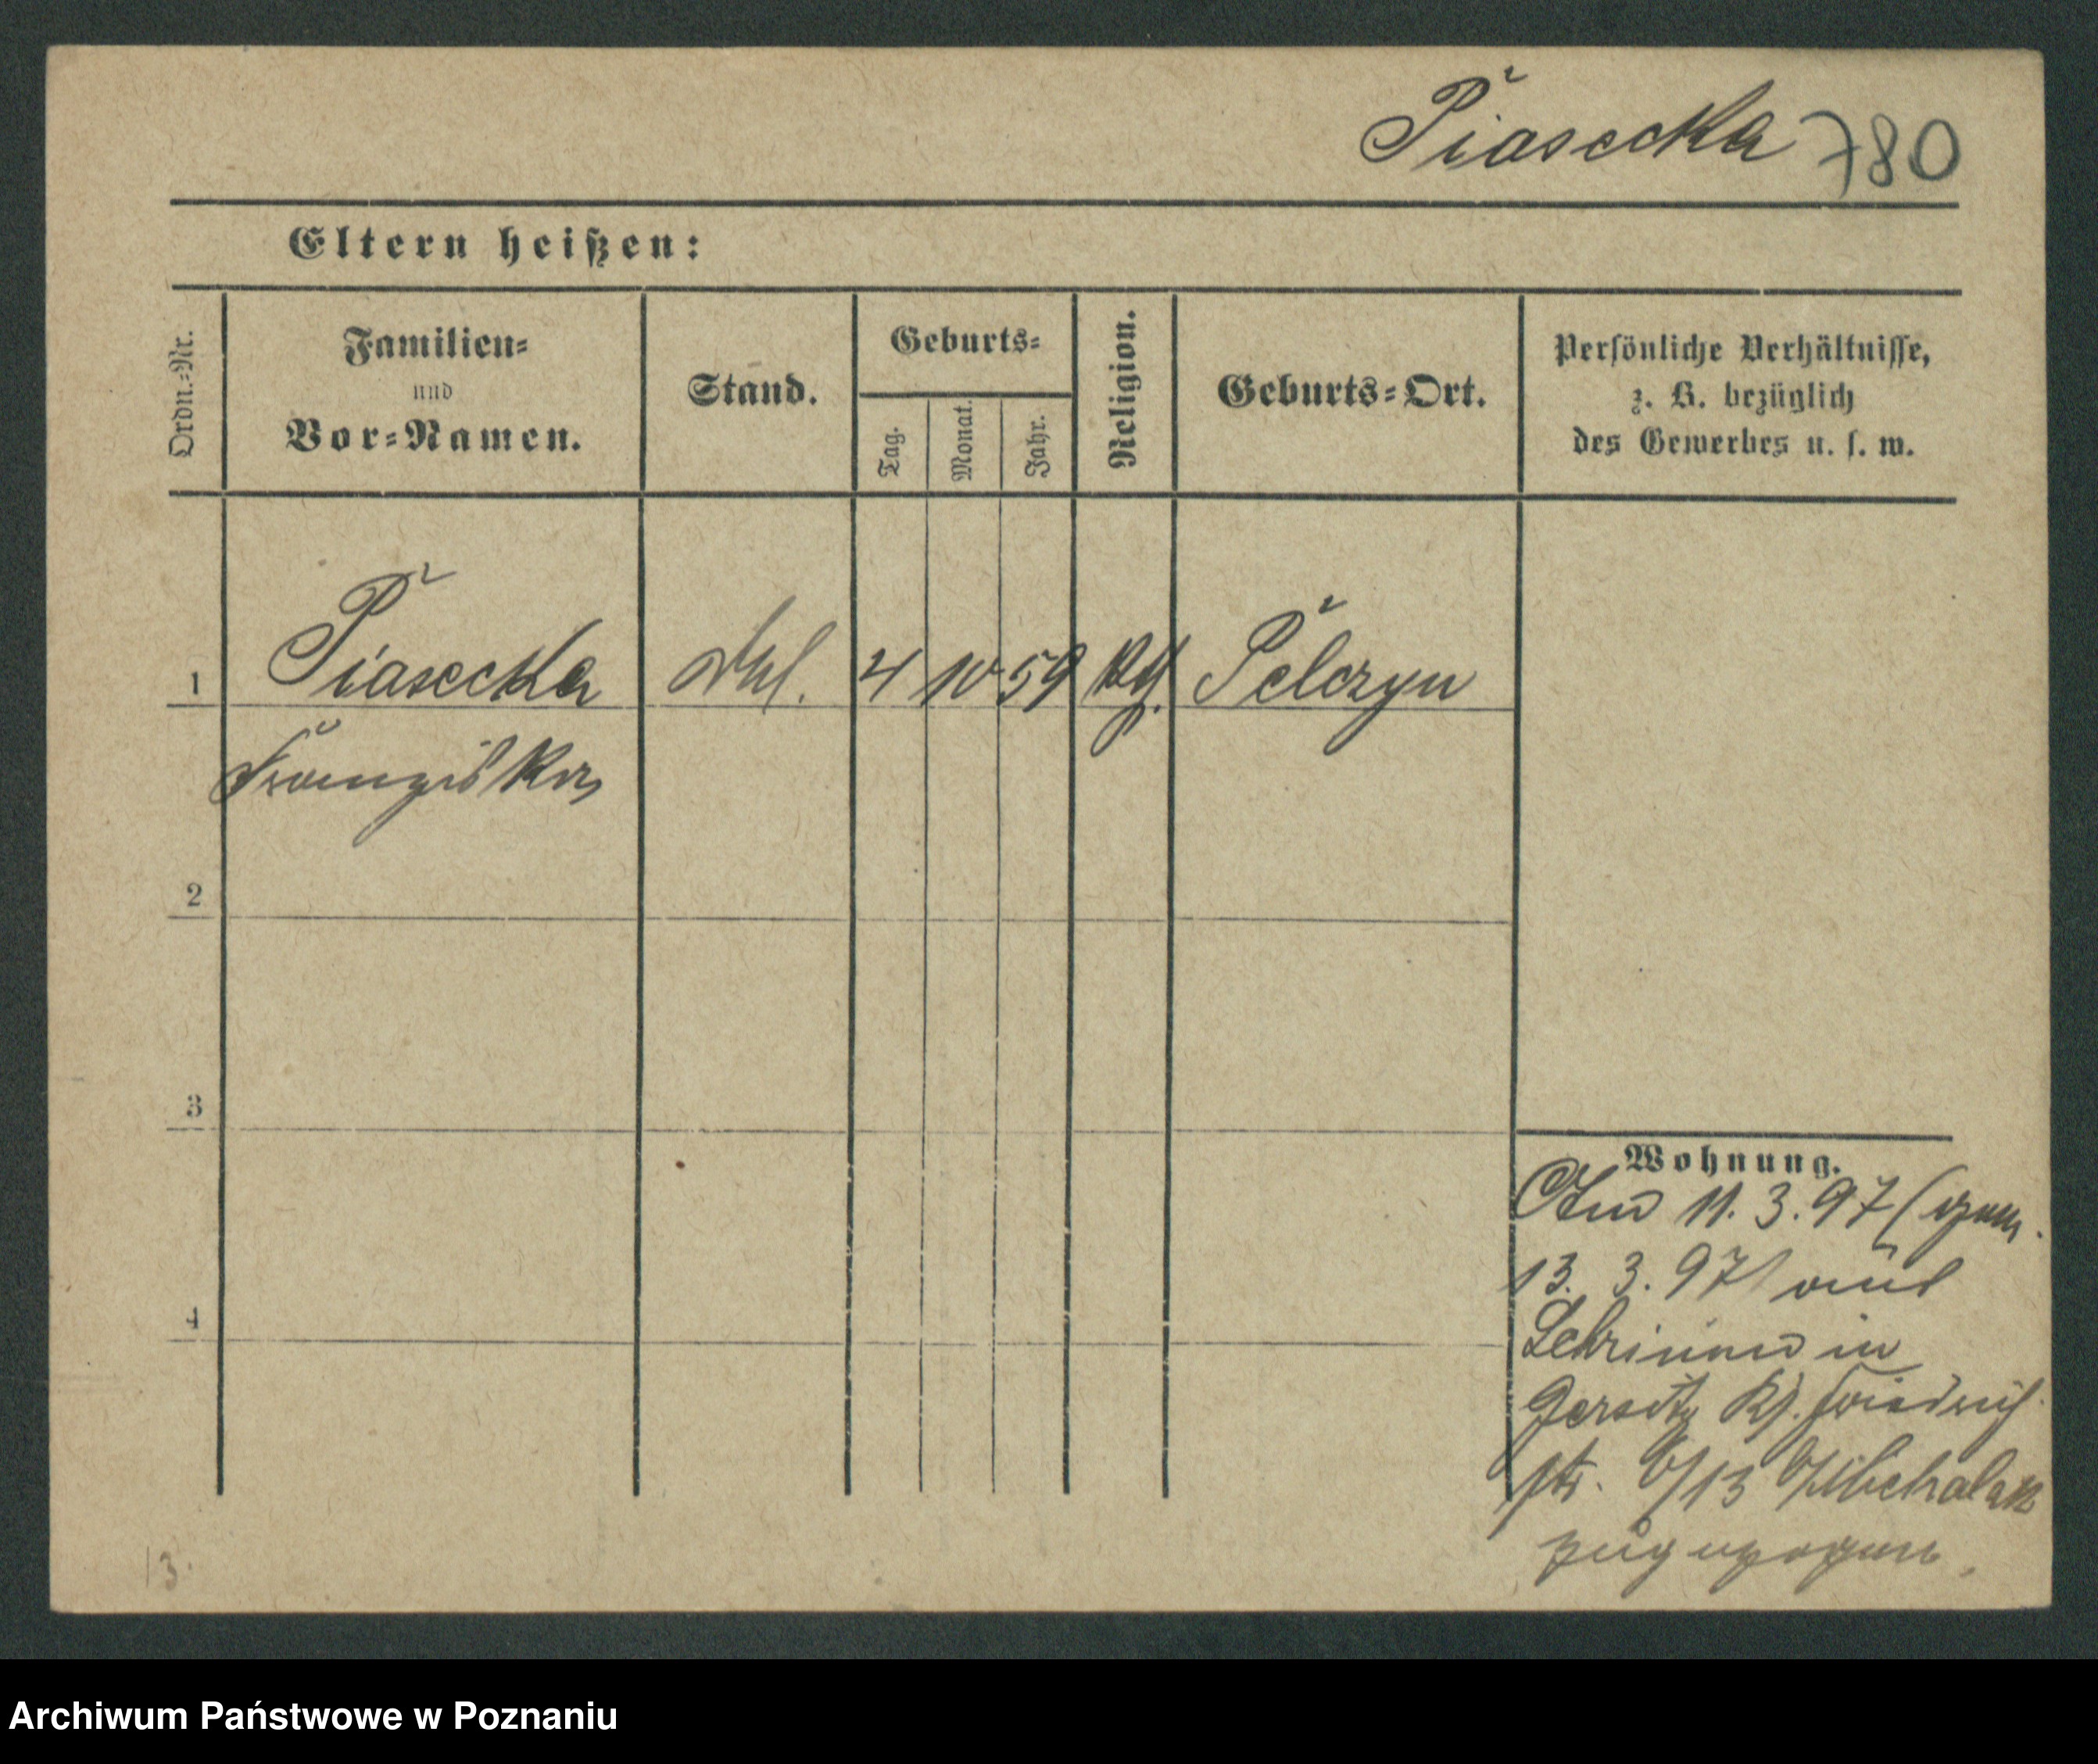 Piasecka 780
Eltern heißen:
Ordn.=Nr.
Familien=
und
Vor=Namen.
Stand.
Geburts=
Tag.
Monat.
Jahr.
Religion.
Geburts=Ort.
Persönliche Verhältnisse,
z. B. bezüglich
des Gewerbes u. s. w.
1 Piasecka 4 10 59 Pelczyn
Franziska
2
3
4
Wohnung.
11.3.97 (gem.
13.3.97) aus
in
Jersitz Friedrich
str. Michalak
zugezogen.
13.
Archiwum Państwowe w Poznaniu